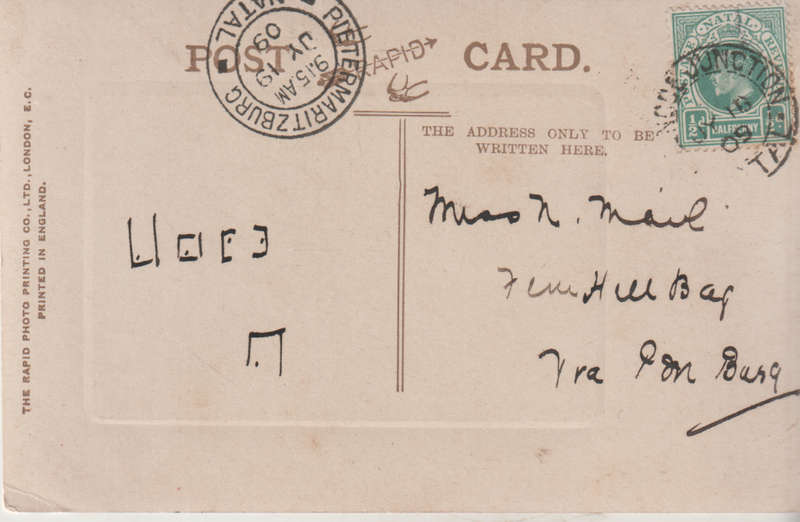 POST CARD.
RAPID
PIETERMARITZBURG
9.15 AM
JY 19
09
NATAL
NATAL
REVENUE
½d
HALFPENNY
JUNCTION
09
THE ADDRESS ONLY TO BE
WRITTEN HERE.
Miss N. Mail
Fern Hill Bag
Via PM Burg
THE RAPID PHOTO PRINTING CO., LTD., LONDON, E.C.
PRINTED IN ENGLAND.